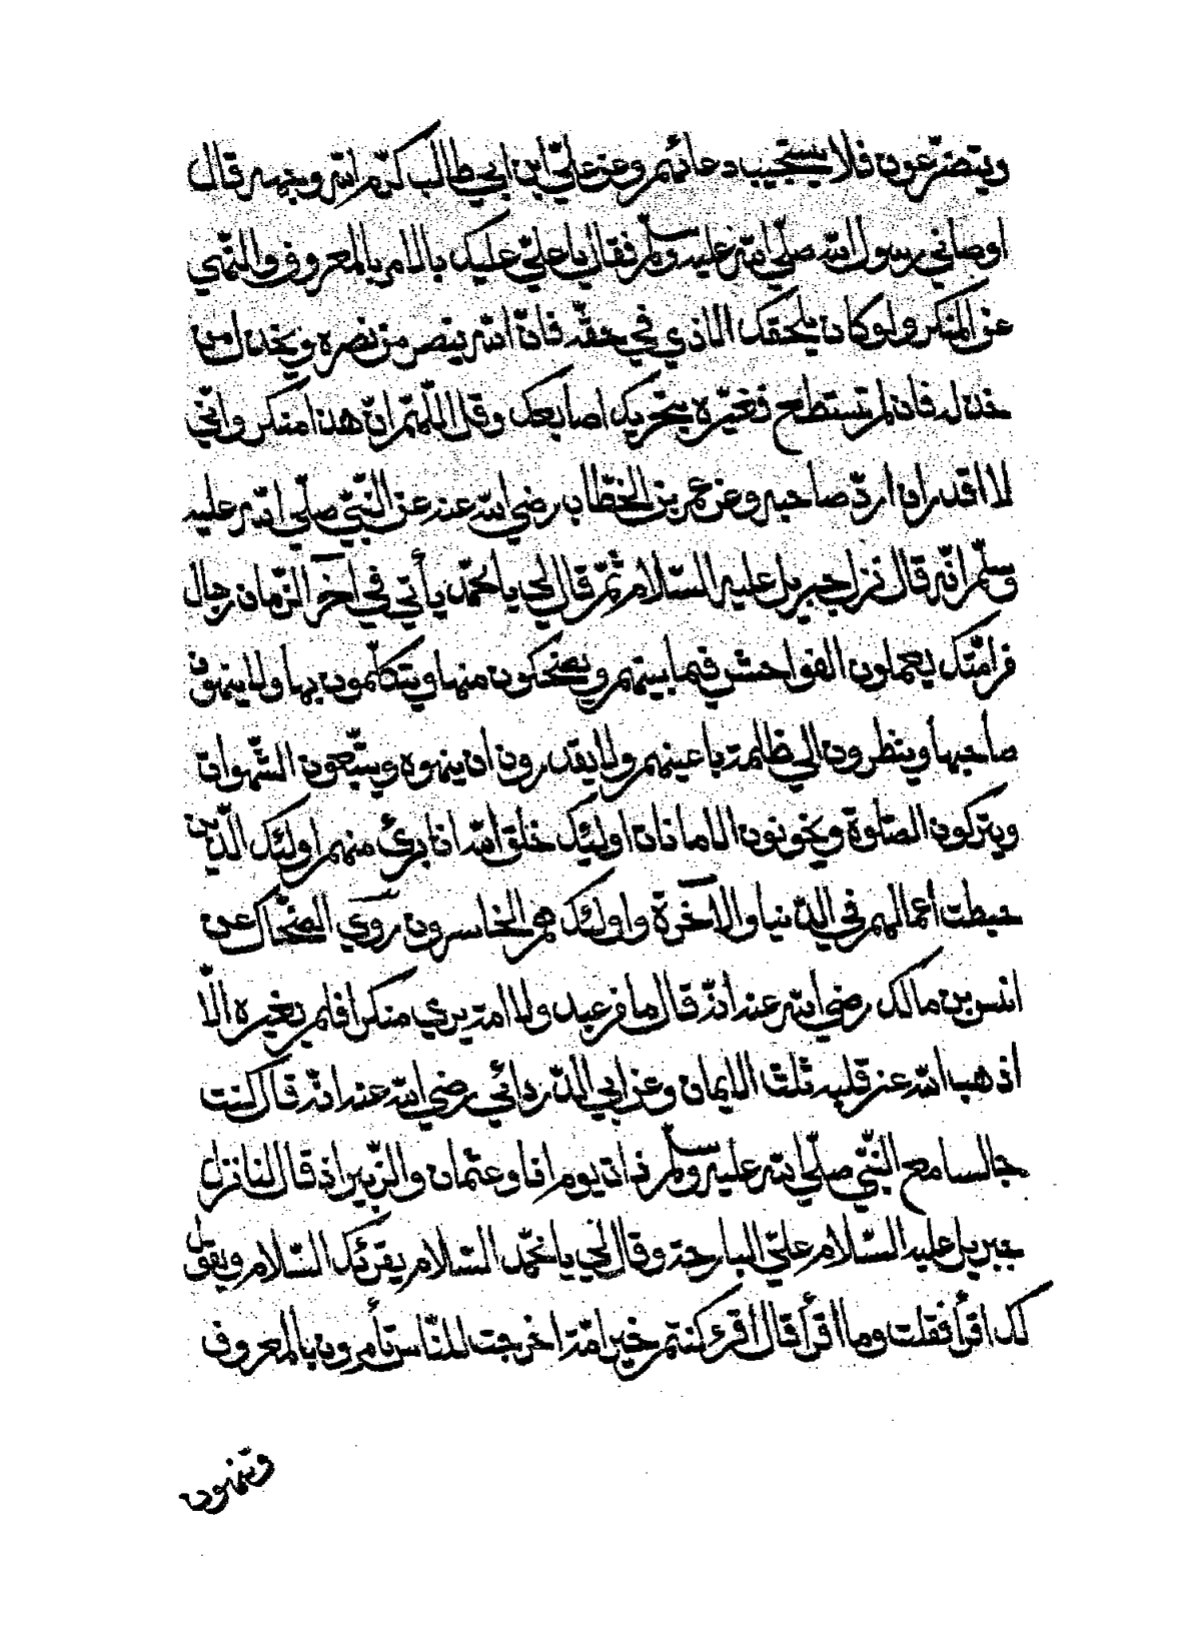 ويتضرّعون فلا يستجيب دعائهم وعن عليّ ابن ابي طالب كرّم الله وجهه قال
اوصاني رسول الله صلّي الله عليه وسلّم فقال يا عليّ عليك بالامر بالمعروف والنّهي
عن المنكر ولو كان يلحقك الاذي في حقّه فانّ الله ينصر من نصره ويخذل من
خذله فان لم تستطع فغيّره بتحريك اصابعك وقل اللّهمّ انّ هذا منكر وانّي
لا اقدر ان اردّ صاحبه وعن عمر بن الخطّاب رضي الله عنه عن النّبيّ صلّي الله عليه
وسلّم انّه قال نزل جبريل عليه السّلام ثمّ قال لي يا محمّد يأتي في آخر الزّمان رجال
من امّتك يعملون الفواحش فيما بينهم ويضحكون منها ويتكلّمون بها ولا ينهون
صاحبها وينظرون الي ظلمة باعينهم ولا يقدرون ان ينهوه ويتّبعون الشّهوات
ويتركون الصّلوة ويخونون الامانات اولئك خلق الله انا برئ منهم اولئك الّذين
حبطت أعمالهم في الدّنيا والآخرة واولئك هم الخاسرون روي الضّحّاك عن
انس بن مالك رضي الله عنه انّه قال ما من عبد ولا امة يري منكرا فلم يغيره الّا
اذهب الله عن قلبه ثلث الايمان وعن ابي الدّردائي رضي الله عنه انّه قال كنت
جالسا مع النّبيّ صلّي الله عليه وسلّم ذات يوم انا وعثمان والزّبير اذ قال لنا نزل
جبريل عليه السّلام عليّ البارحة وقال لي يا محمّد السّلام يقرئك السّلام ويقول
لك اقرأ فقلت وما اقرأ قال اقرء كنتم خير امّة اخرجت للنّاس تأمرون بالمعروف
وتنهون